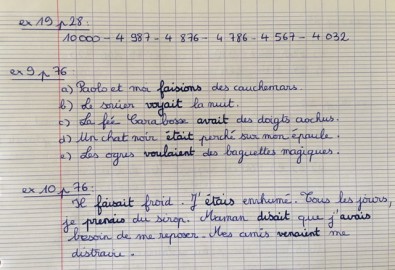 ex 19 p 28 :
10 000 - 4 987 - 4 876 - 4 786 - 4 567 - 4 032
ex 9 p 76
a) Paolo et moi faisions des cauchemars.
b) Le sorcier voyait la nuit.
c) La fée Carabosse avait des doigts crochus.
d) Un chat noir était perché sur mon épaule.
e) Les ogres voulaient des baguettes magiques.
ex 10 p 76 :
Il faisait froid. J'étais enrhumé. Tous les jours,
je prenais du sirop. Maman disait que j'avais
besoin de me reposer. Mes amis venaient me
distraire.